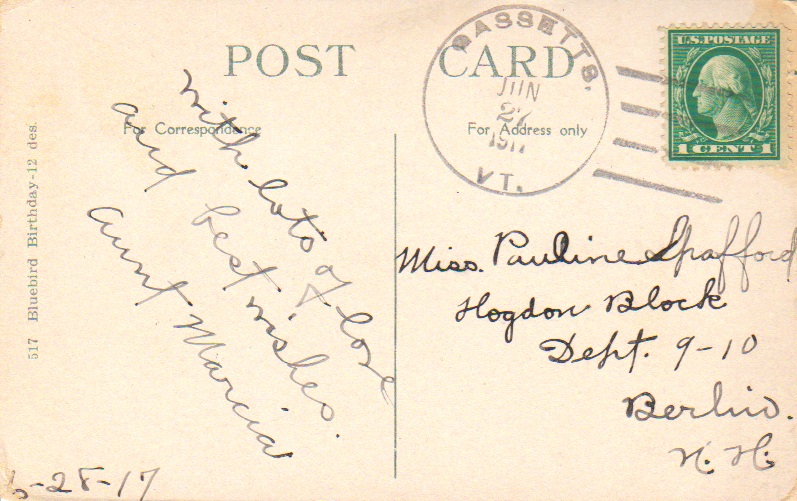 POST CARD
For Correspondence
For Address only
GASSETTS.
JUN
27
1917
VT.
U.S. POSTAGE
1 CENT 1
with lots of love
and best wishes.
Aunt Marcia
Miss. Pauline Spafford
Hogdon Block
Dept. 9-10
Berlin.
N. H.
-28-17
517 Bluebird Birthday-12 des.